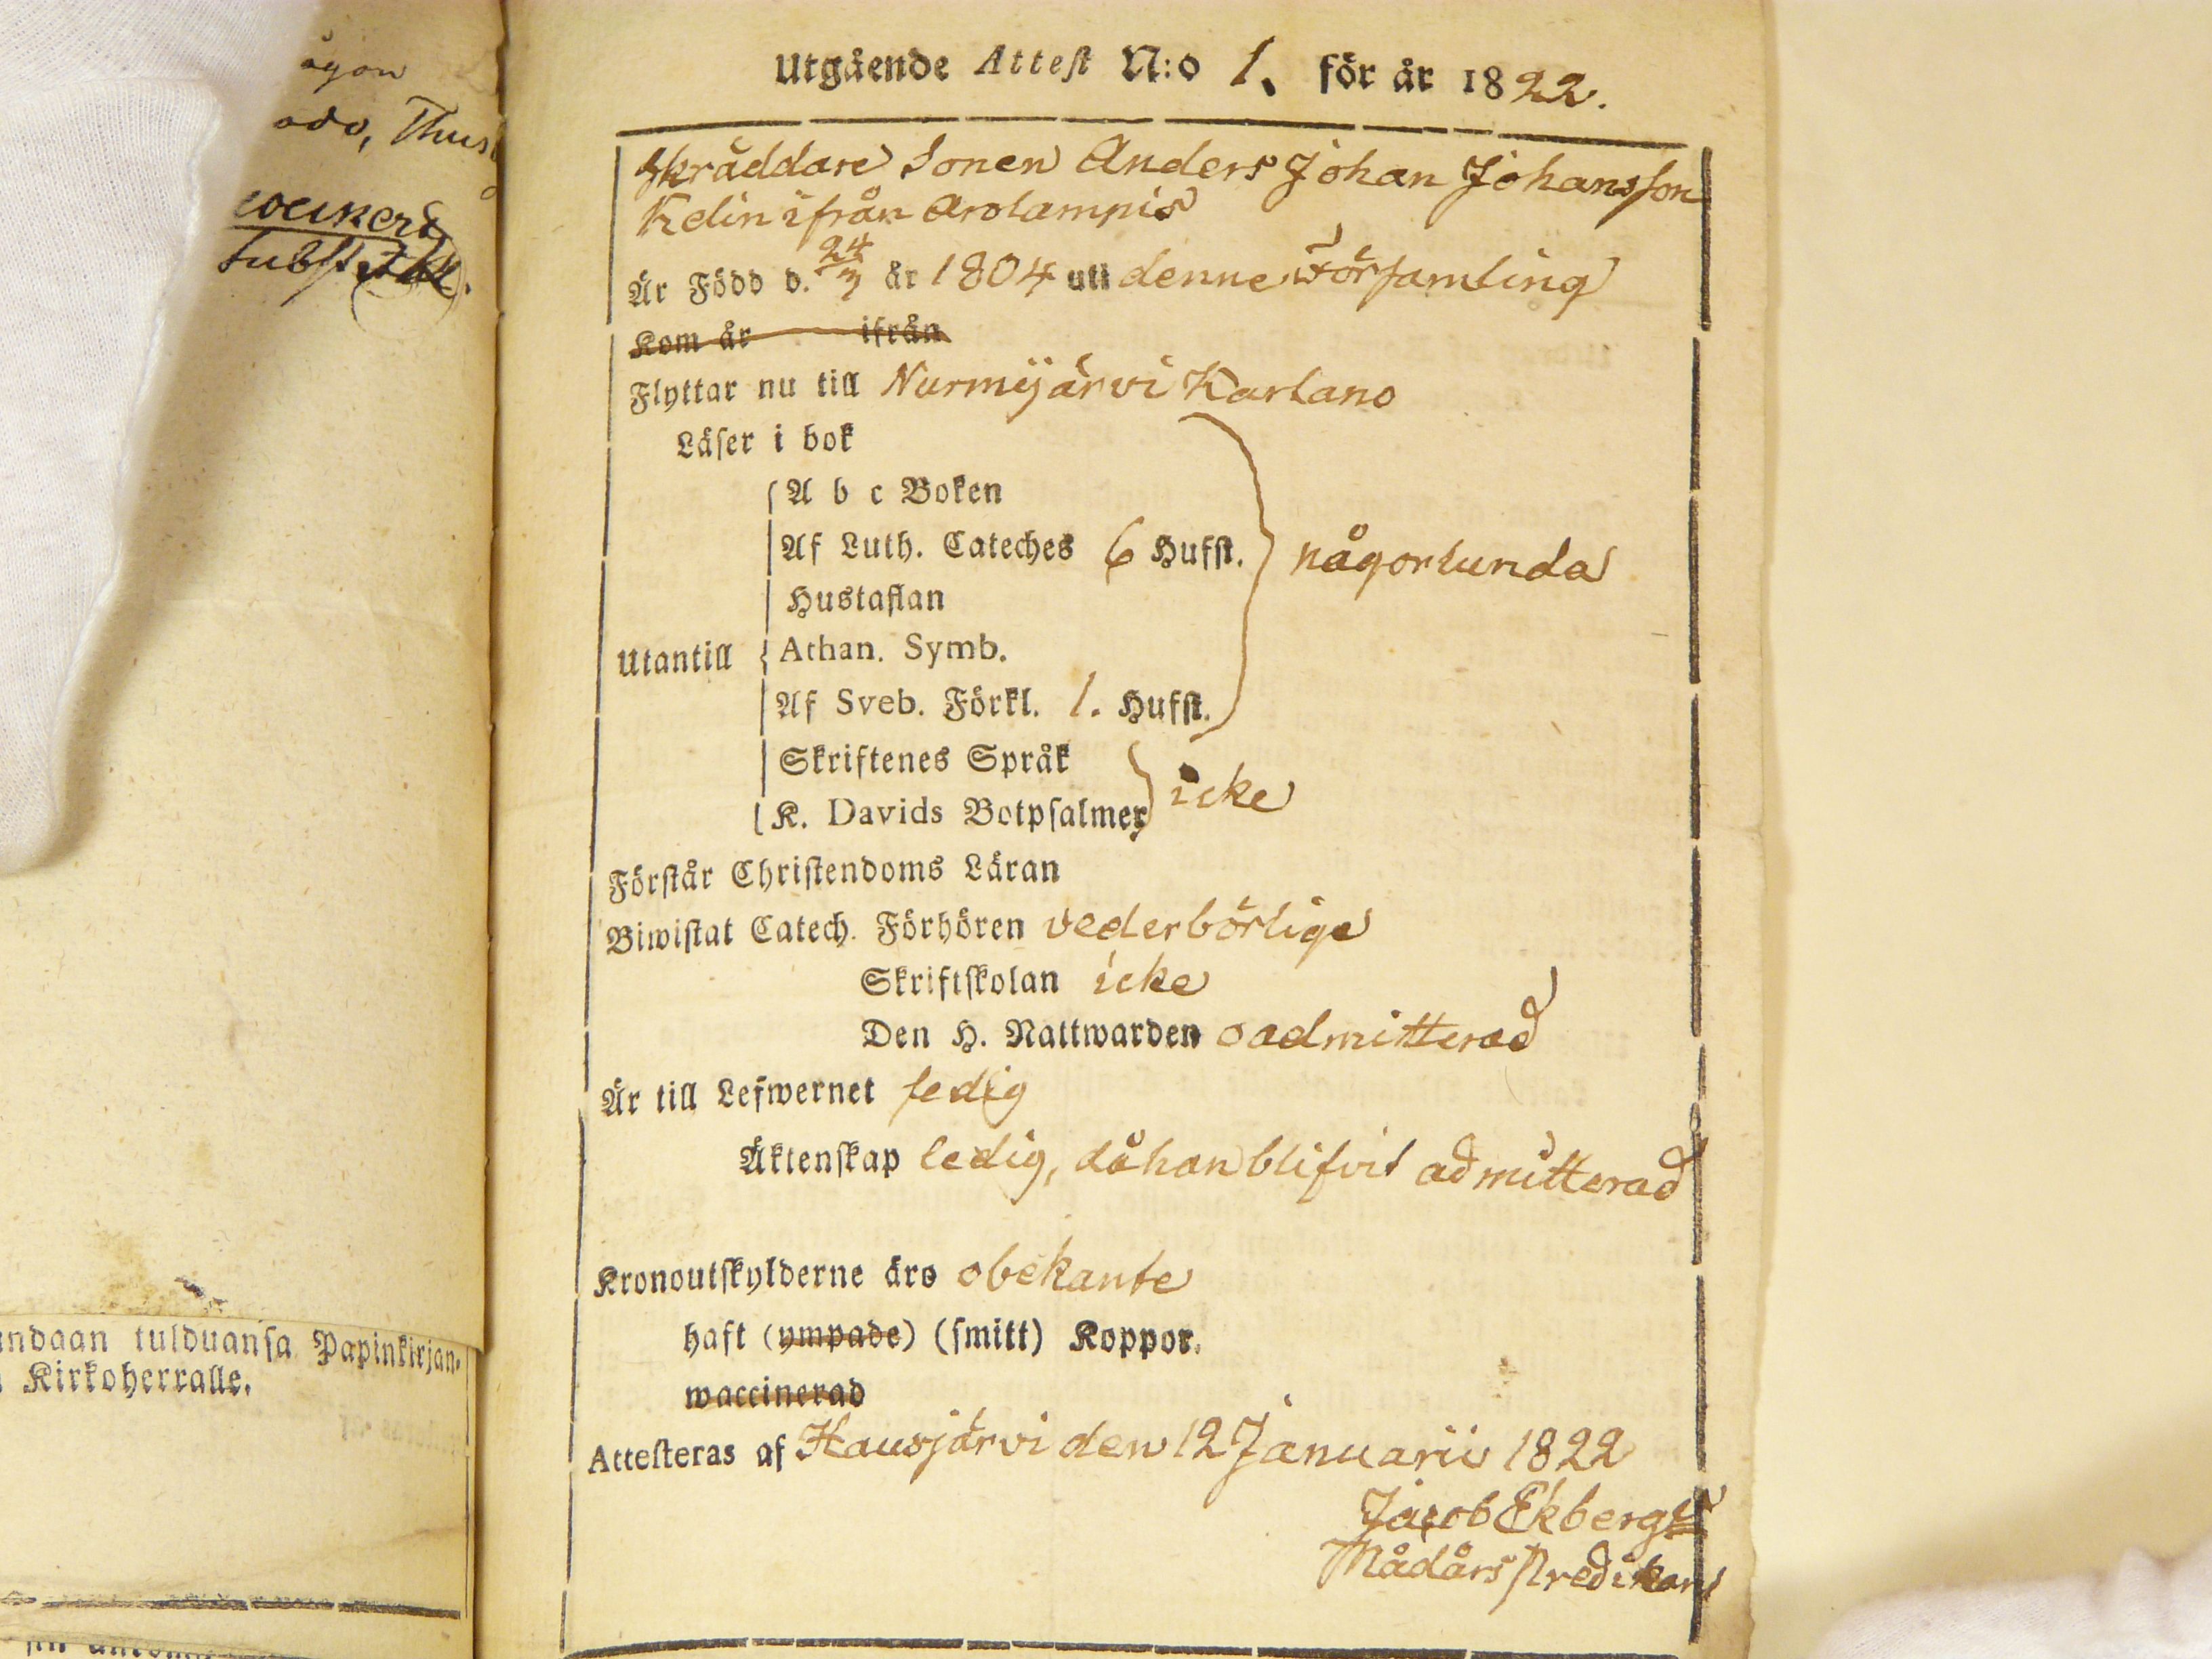 ågon
odo, Thus
Utgående Attest N:o 1. för år 1822.
Skräddare Sonen Anders Johan Johansson
Kelin ifrån Arolampis
Är Född d. 24/7 år 1804 uti denne Församling
Kom år ifrån
Flyttar nu till Nurmijärvi Karlano
Läser i bok
A b c Boken
Af Luth. Cateches 6 Hufst.
någorlunda
Hustaflan
Utantill
Athan. Symb.
Af Sveb. Förkl. 1. Hufst.
Skriftenes Språk
icke
K. Davids Botpsalmer
Förstår Christendoms Läran
Biwistat Catech. Förhören vederbörlige
Skriftskolan icke
Den H. Nattwarden oadmitterad
Är till Lefwernet fedig
Äktenskap ledig, då han blifvit admitterad
Kronoutskylderne äro obekante
haft (ympade) (smitt) Koppor.
waccinerad
Attesteras af Hausjärvi den 12 Januarii 1822
Jacob Ekberg
Nådårs Predikant
ndaan tulduansa Papinkirjan-
Kirkoherralle.